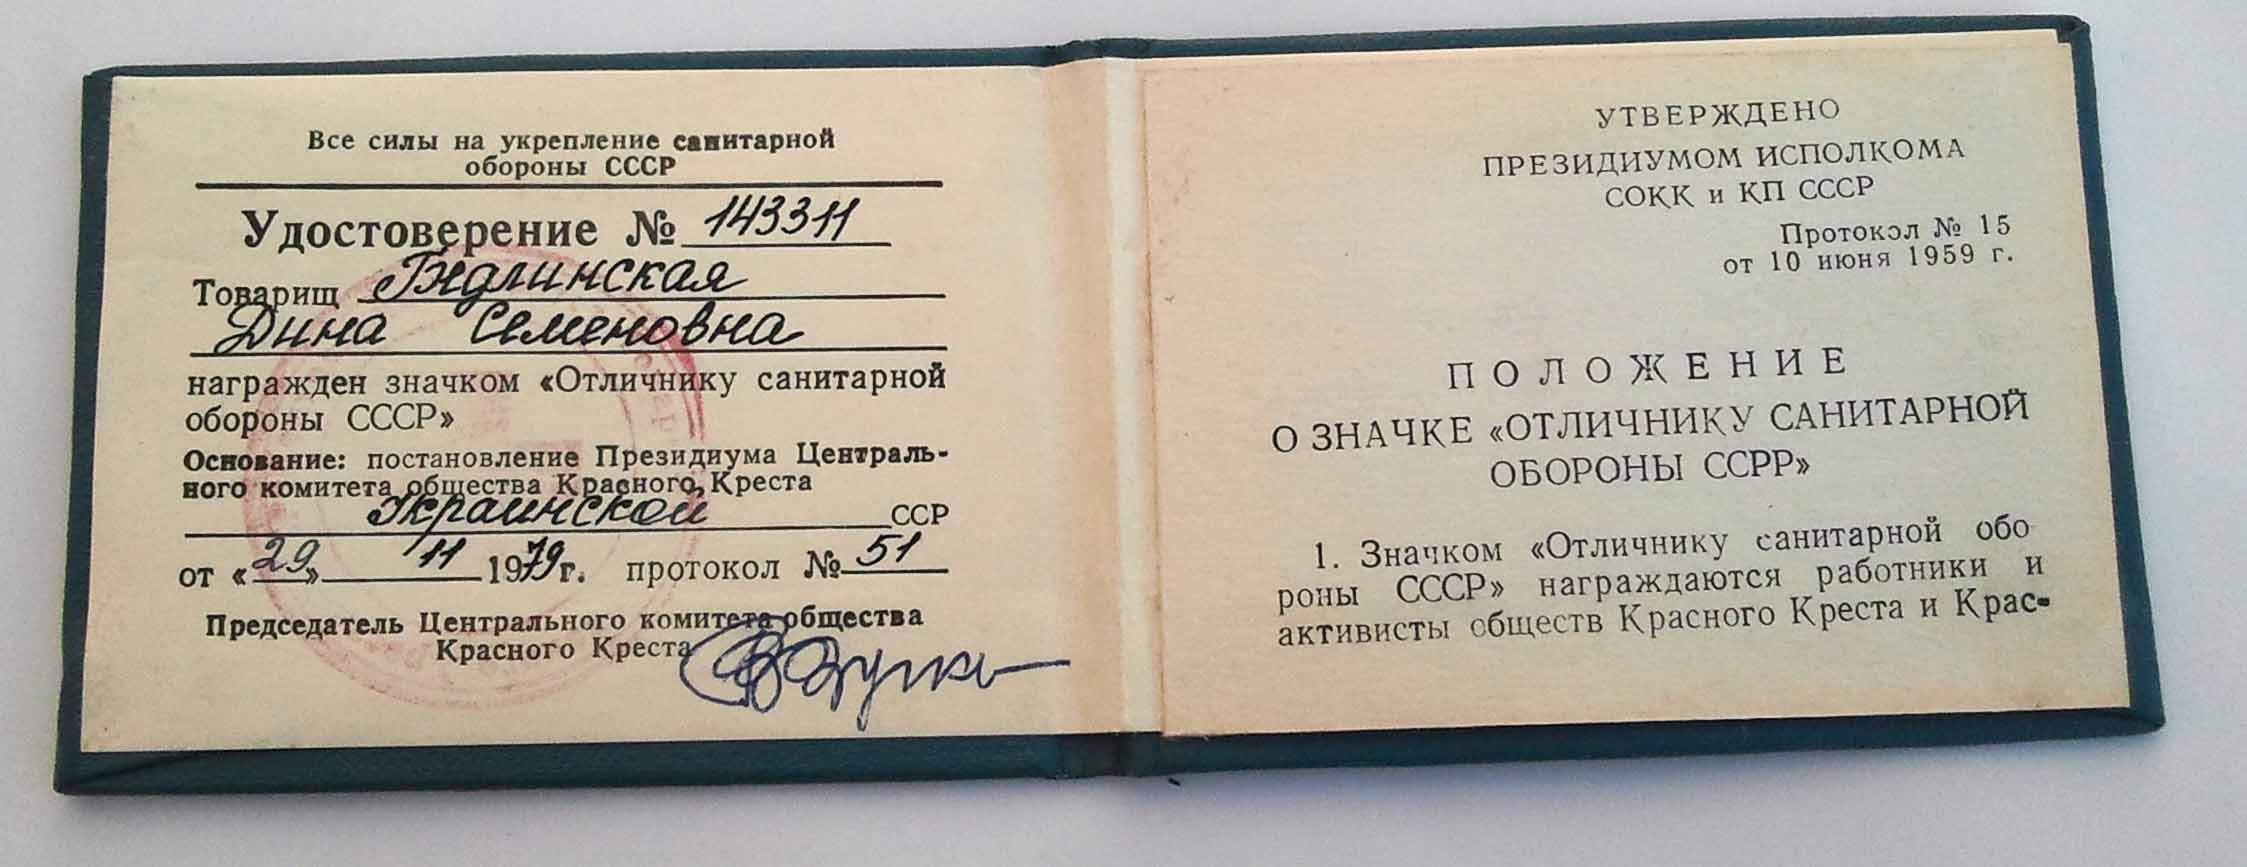 Все силы на укрепление санитарной
обороны СССР
Удостоверение № 143311
Товарищ
Дина Семеновна
награжден значком «Отличнику санитарной
обороны СССР»
Основание: постановление Президиума Централь-
ного комитета общества Красного Креста
Украинской ССР
от «29» 11 1979г. протокол № 51
Председатель Центрального комитета общества
Красного Креста
УТВЕРЖДЕНО
ПРЕЗИДИУМОМ ИСПОЛКОМА
СОКК и КП СССР
Протокол № 15
от 10 июня 1959 г.
ПОЛОЖЕНИЕ
О ЗНАЧКЕ «ОТЛИЧНИКУ САНИТАРНОЙ
ОБОРОНЫ ССРР»
1. Значком «Отличнику санитарной обо
роны СССР» награждаются работники и
активисты обществ Красного Креста и Крас-